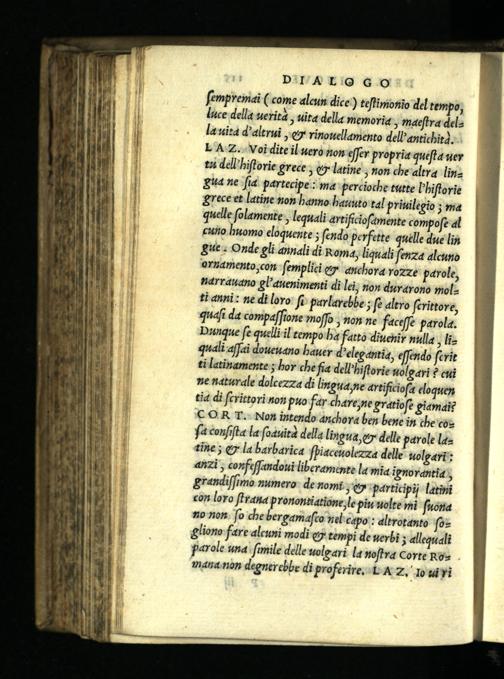 DIALOGO
sempremai ( come alcun dice ) testimonio del tempo,
luce della verità, vita della memoria, maestra del=
la vita d'altrui, & rinovellamento dell'antichità.
LAZ. Voi dite il vero non esser propria questa ver
tù dell'historie grece, & latine, non che altra lin=
gua ne sia partecipe: ma percioche tutte l'historie
grece et latine non hanno havuto tal privilegio; ma
quelle solamente, lequali artificiosamente compose al
cuno huomo eloquente; sendo perfette quelle due lin
gue. Onde gli annali di Roma, liquali senza alcuno
ornamento, con semplici & anchora rozze parole,
narravano gl'avenimenti di lei, non durarono mol=
ti anni: ne di loro si parlarebbe; se altro scrittore,
quasi da compassione mosso, non ne facesse parola.
Dunque se quelli il tempo ha fatto divenir nulla, li=
quali assai dovevano haver d'elegantia, essendo scrit
ti latinamente; hor che fia dell'historie volgari? cui
ne naturale dolcezza di lingua, ne artificiosa eloquen
tia di scrittori non puo far chare, ne gratiose giamai?
CORT. Non intendo anchora ben bene in che co=
sa consista la soavità della lingua, & delle parole la=
tine; & la barbarica spiacevolezza delle volgari:
anzi, confessandovi liberamente la mia ignorantia,
grandissimo numero de nomi, & participij latini
con loro strana prononciatione, le piu volte mi suona
no non so che bergamasco nel capo: altrotanto so=
gliono fare alcuni modi & tempi de verbi; allequali
parole una simile delle volgari la nostra Corte Ro=
mana non degnerebbe di proferire. LAZ. Io vi ri